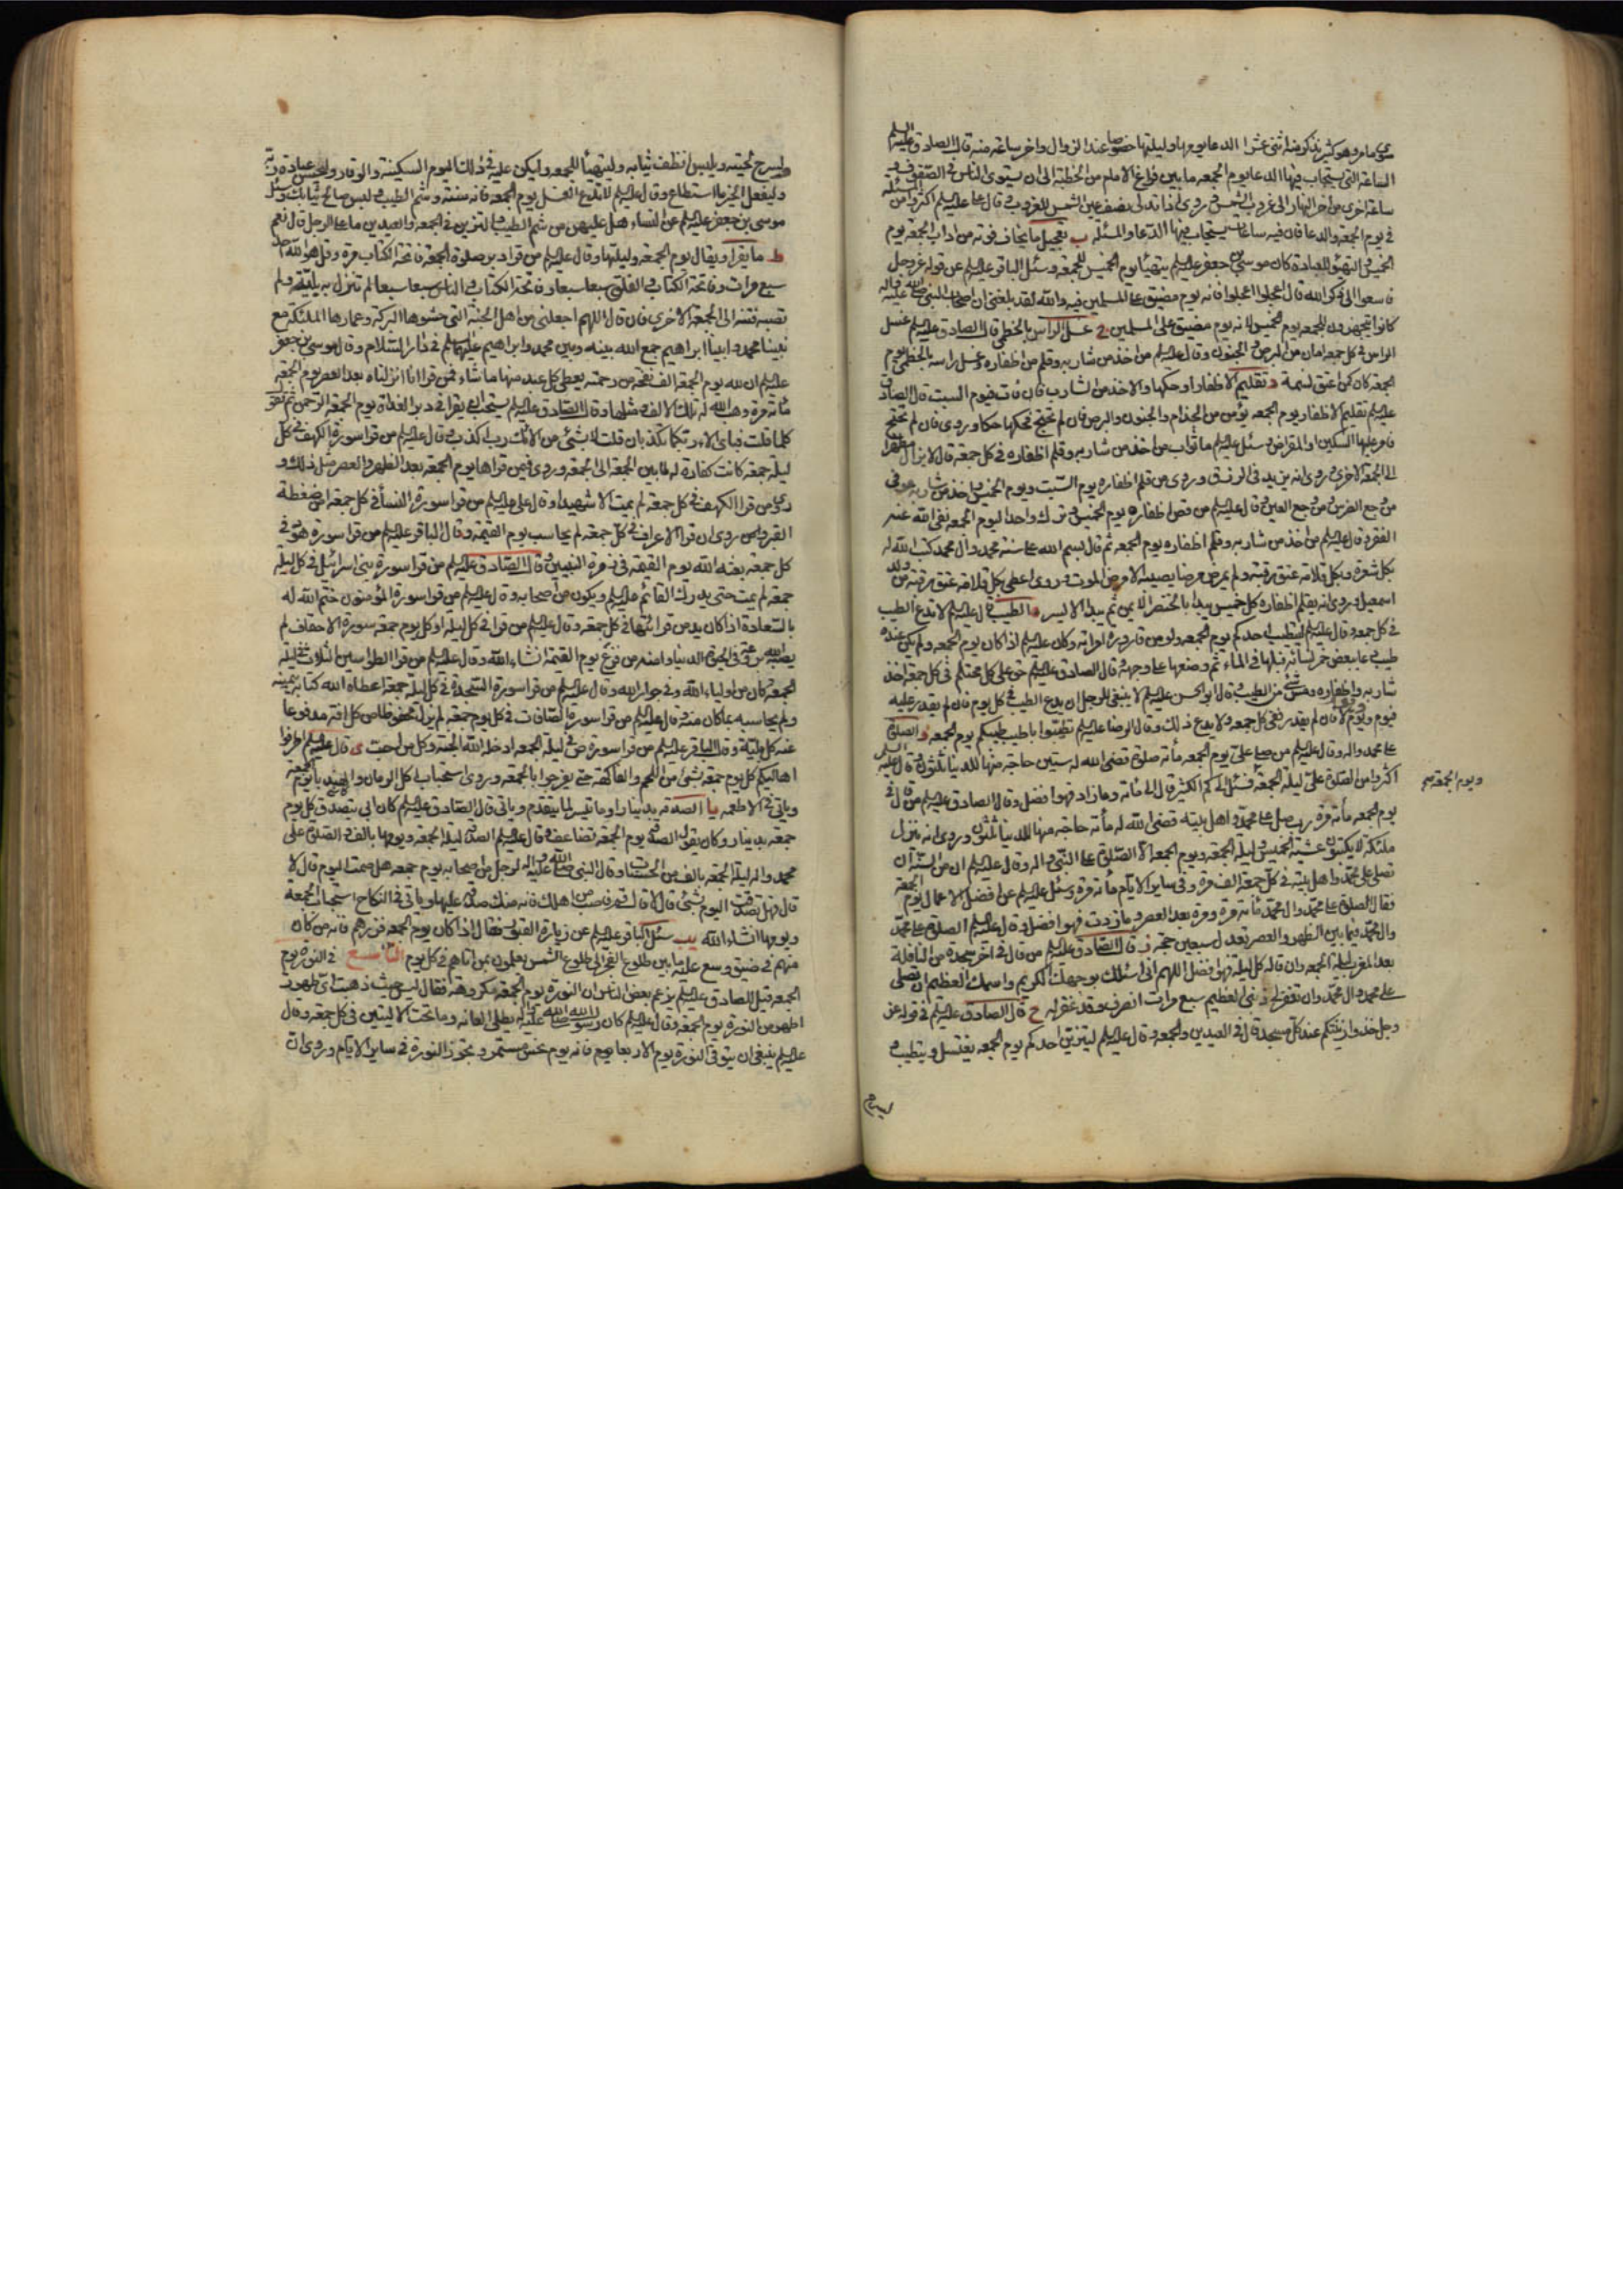 سوى ما مر وهو كثير نذكر منه اثنى عشر ا الدعا يومها وليلتها خصوصا عند الزوال واخر ساعة منه قال الصادق عليه السلم
الساعة التى يستجاب فيها الدعا يوم الجمعه ما بين فراغ الامام من الخطبة الى ان يستوى الناس فى الصفوف و
ساعة اخرى من اخر النهار الى غروب الشمس وروى اذا تدلى نصف عين الشمس للغروب وقال عليه السلم اكثروا من المسئلة
فى يوم الجمعة والدعا فان فيه ساعات يستجاب فيها الدعا والمسئلة ب تعجيل ما يخاف فوته من اداب الجمعة يوم
الخميس والتهيؤ للعبادة كان موسى بن جعفر عليه السلم يتهيأ يوم الخميس للجمعة وسئل الباقر عليه السلم عن قوله عز وجل
فاسعوا الى ذكر الله قال اعجلوا اعجلوا فانه يوم مضيق على المسلمين فيه والله لقد بلغنى ان اصحاب النبى صلى الله عليه واله
كانوا يتجهزون للجمعه يوم الخميس لانه يوم مضيق على المسلمين ج غسل الراس بالخطمى قال الصادق عليه السلم غسل
الراس فى كل جمعة امان من البرص والجنون وقال عليه السلم من اخذ من شاربه وقلم من اظفاره وغسل راسه بالخطمى يوم
الجمعة كان كمن اعتق نسمة د تقليم الاظفار او حكها والاخذ من الشارب فان فات فيوم السبت قال الصادق
عليه السلم تقليم الاظفار يوم الجمعه يؤمن من الجذام والجنون والبرص فان لم تحتج فحكها حكا وروى فان لم تحتج
فامر عليها السكين او المقراض وسئل عليه السلم ما ثواب من اخذ من شاربه وقلم اظفاره فى كل جمعة قال لا يزال مطهرا
الى الجمعة الاخرى وروى انه يزيد فى الرزق وروى من قلم اظفاره يوم السبت ويوم الخميس واخذ من شاربه عوفى
من وجع الضرس ومن وجع العين وقال عليه السلم من قص اظفاره يوم الخميس وترك واحدا ليوم الجمعه نفى الله عنه
الفقر وقال عليه السلم من اخذ من شاربه وقلم اظفاره يوم الجمعه ثم قال بسم الله على سنة محمد وال محمد كتب الله له
بكل شعرة وبكل قلامة عتق رقبة ولم يمرض مرضا يصيبه الا مرض الموت وروى اعطى بكل قلامة عتق رقبة من ولد
اسمعيل وروى انه يقلم اظفاره كل خميس يبدا بالخنصر الايمن ثم يبدا الايسر ه الطيب قال عليه السلم لا تدع الطيب
فى كل جمعه وقال عليه السلم ليتطيب احدكم يوم الجمعه ولو من قارورة امراته وكان عليه السلم اذا كان يوم الجمعه ولم يكن عنده
طيب دعا ببعض خمر نسائه فبلها فى الماء ثم وضعها على وجهه وقال الصادق عليه السلم حق على كل محتلم فى كل جمعة اخذ
شاربه واظفاره ومس شئ من الطيب وقال ابو الحسن عليه السلم لا ينبغى للرجل ان يدع الطيب فى كل يوم فان لم يقدر عليه
فيوم ويوم لا فان لم يقدر ففى كل جمعه ولا يدع ذلك وقال الرضا عليه السلم تطيبوا باطيب طيبكم يوم الجمعه و الصلوة
على محمد واله وقال عليه السلم من صلى على يوم الجمعه مأة صلوة قضى الله له ستين حاجة منها للدنيا ثلثون وقال عليه السلم
اكثروا من الصلوة على ليلة الجمعة ويوم الجمعة فسئل الى كم الكثير قال الى مأة وما زاد فهو افضل وقال الصادق عليه السلم من قال فى
يوم الجمعه مأة مرة رب صل على محمد واهل بيته قضى الله له مأة حاجة منها للدنيا ثلثون وروى انه ينزل
ملئكة لا يكتبون عشية الخميس وليلة الجمعه ويوم الجمعه الا الصلوة على النبى واله وقال عليه السلم ان من السنة ان
تصلى على محمد واهل بيته فى كل جمعة الف مرة وفى ساير الايام مأة مرة وسئل عليه السلم عن افضل الاعمال يوم الجمعة
فقال الصلوة على محمد وال محمد مأة مرة ومرة بعد العصر وما زدت فهو افضل وقال عليه السلم الصلوة على محمد
وال محمد فيما بين الظهر والعصر تعدل سبعين حجة ز قال الصادق عليه السلم من قال فى آخر سجدة من النافلة
بعد المغرب ليلة الجمعه وان قاله كل ليلة فهو افضل اللهم انى اسئلك بوجهك الكريم واسمك العظيم ان تصلى
على محمد وال محمد وان تغفر لى ذنبى العظيم سبع مرات انصرف وقد غفر له ح قال الصادق عليه السلم فى قوله عز
وجل خذوا زينتكم عند كل مسجد قال فى العيدين والجمعه وقال عليه السلم ليتزين احدكم يوم الجمعه يغتسل ويتطيب و
ويوم الجمعة صح
ويسرح لحيته ويلبس انظف ثيابه وليتهيأ للجمعه وليكن عليه فى ذلك اليوم السكينة والوقار وليحسن عبادة ربه
وليفعل الخير ما استطاع وقال عليه السلم لا تدع الغسل يوم الجمعه فانه سنة وشم الطيب والبس صالح ثيابك وسئل
موسى بن جعفر عليه السلم عن النساء هل عليهن من شم الطيب والتزين فى الجمعه والعيدين ما على الرجل قال نعم
ط ما يقرا ويقال يوم الجمعه وليلتها وقال عليه السلم من قرا دبر صلوة الجمعة فاتحة الكتاب مرة وقل هو الله احد
سبع مرات وفاتحة الكتاب والفلق سبعا سبعا وفاتحة الكتاب والناس سبعا سبعا لم تنزل به بلية ولم
تصبه فتنة الى الجمعة الاخرى فان قال اللهم اجعلنى من اهل الجنة التى حشوها البركة وعمارها الملئكة مع
نبينا محمد وابينا ابراهيم جمع الله بينه وبين محمد وابراهيم عليهما السلم فى دار السلام وقال موسى بن جعفر
عليه السلم ان لله يوم الجمعة الف نفحة من رحمته يعطى كل عبد منها ما شاء فمن قرا انا انزلناه بعد العصر يوم الجمعه
مأة مرة وهب الله له تلك الالف ومثلها وقال الصادق عليه السلم يستحب ان يقرا فى دبر الغداة يوم الجمعة الرحمن ثم تقول
كلما قلت فباى الاء ربكما تكذبان قلت لا بشئ من الائك رب اكذب وقال عليه السلم من قرا سورة الكهف فى كل
ليلة جمعة كانت كفارة له لما بين الجمعة الى الجمعة وروى فيمن قراها يوم الجمعة بعد الظهر والعصر مثل ذلك و
روى من قرا الكهف فى كل جمعة لم يمت الا شهيدا وقال على عليه السلم من قرا سورة النساء فى كل جمعة امن ضغطة
القبر وروى ان من قرا الاعراف فى كل جمعة لم يحاسب يوم القيمة وقال الباقر عليه السلم من قرا سورة هود فى
كل جمعة بعثه الله يوم القيمة فى زمرة النبيين وقال الصادق عليه السلم من قرا سورة بنى اسرائيل فى كل ليلة
جمعة لم يمت حتى يدرك القائم عليه السلم ويكون من اصحابه وقال عليه السلم من قرا سورة المؤمنون ختم الله له
بالسعادة اذا كان يدمن قرائتها فى كل جمعة وقال عليه السلم من قرا فى كل ليلة او كل يوم جمعة سورة الاحقاف لم
يصبه الله بروعة فى الحيوة الدنيا وامنه من فزع يوم القيمة انشاء الله وقال عليه السلم من قرا الطواسين الثلاث فى ليلة
الجمعه كان من اولياء الله وفى جوار الله وقال عليه السلم من قرا سورة السجدة فى كل ليلة جمعة اعطاه الله كتابه بيمينه
ولم يحاسبه بما كان منه وقال عليه السلم من قرا سورة الصافات فى كل يوم جمعة لم يزل محفوظا من كل افة مدفوعا
عنه كل بلية وقال الباقر عليه السلم من قرا سورة ص فى ليلة الجمعه ادخله الله الجنة وكل من احب ى قال عليه السلم اطرفوا
اهاليكم كل يوم جمعة بشئ من اللحم والفاكهة حتى يفرحوا بالجمعه وروى استحباب اكل الرمان والهندباء يوم الجمعة
وياتى فى الاطعمه يا الصدقه بدينار او ما تيسر لما تقدم وياتى قال الصادق عليه السلم كان ابى يتصدق كل يوم
جمعة بدينار وكان يقول الصدقة يوم الجمعة تضاعف وقال عليه السلم الصدقة ليلة الجمعه ويومها بالف والصلوة على
محمد واله ليلة الجمعه بالف من الحسنات وقال النبى صلى الله عليه واله لرجل من اصحابه يوم جمعه هل صمت اليوم قال لا
قال فهل تصدقت اليوم بشئ قال لا قال قم فاصب من اهلك فانه منك صدقة عليها وياتى فى النكاح استحباب الجمعه
ويومها انشاء الله يب سئل الباقر عليه السلم عن زيارة القبور فقال اذا كان يوم الجمعه فزرهم فانه من كان
منهم فى ضيق وسع عليه ما بين طلوع الفجر الى طلوع الشمس يعلمون بمن اتاهم فى كل يوم التاسع فى النورة يوم
الجمعه قيل للصادق عليه السلم يزعم بعض الناس ان النورة يوم الجمعه مكروهة فقال ليس حيث ذهبت اى طهور
اطهر من النورة يوم الجمعه وقال عليه السلم كان رسول الله صلى الله عليه واله يطلى العانة وما تحت الاليتين فى كل جمعه وقال
عليه السلم ينبغى ان يتوقى النورة يوم الاربعا فانه يوم نحس مستمر وتجوز النورة فى ساير الايام وروى ان